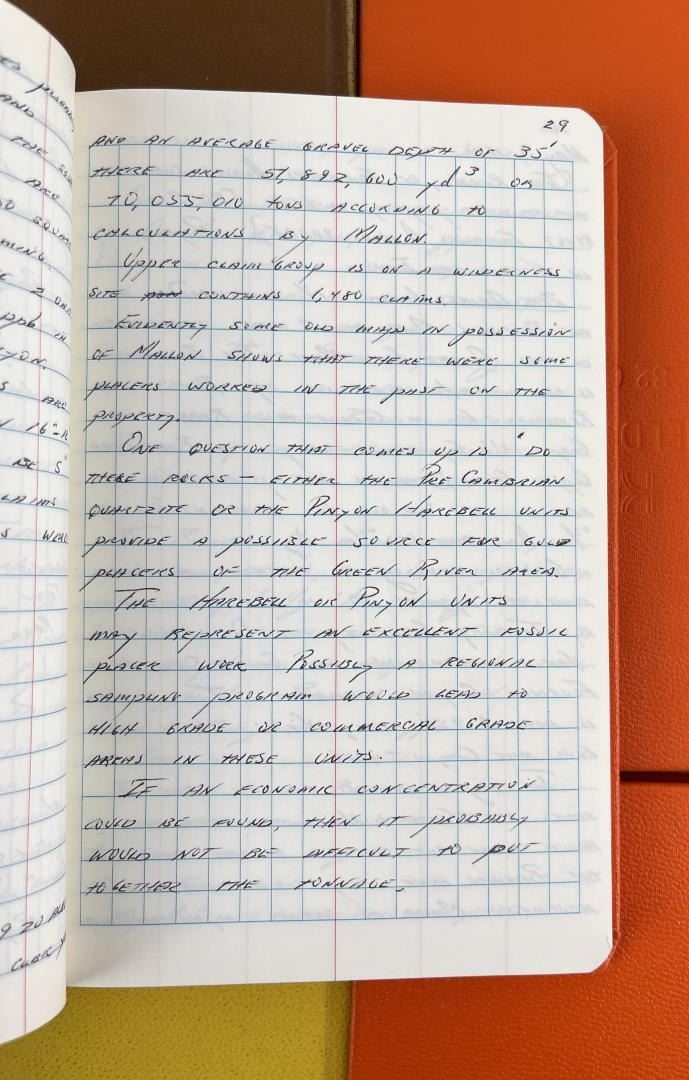 29
AND AN AVERAGE GRAVEL DEPTH OF 35'
THERE ARE 51,892,600 yd³ OR
70,055,010 TONS ACCORDING TO
CALCULATIONS BY MALLON.
UPPER CLAIM GROUP IS ON A WINDERNESS
SITE CONTAINS 1,480 CLAIMS.
EVIDENTLY SOME OLD MAPS IN POSSESSION
OF MALLON SHOWS THAT THERE WERE SOME
PLACERS WORKED IN THE PAST ON THE
PROPERTY.
ONE QUESTION THAT COMES UP IS "DO
THESE ROCKS – EITHER THE PRE CAMBRIAN
QUARTZITE OR THE PINYON HAREBELL UNITS
PROVIDE A POSSIIBLE SOURCE FOR GOLD
PLACERS OF THE GREEN RIVER AREA.
THE HAREBELL OR PINYON UNITS
MAY REPRESENT AN EXCELLENT FOSSIL
PLACER WORK. POSSIBLY A REGIONAL
SAMPLING PROGRAM WOULD LEAD TO
HIGH GRADE OR COMMERCIAL GRADE
AREAS IN THESE UNITS.
IF AN ECONOMIC CONCENTRATION
COULD BE FOUND, THEN IT PROBABLY
WOULD NOT BE DIFFICULT TO PUT
TOGETHER THE TONNAGE.